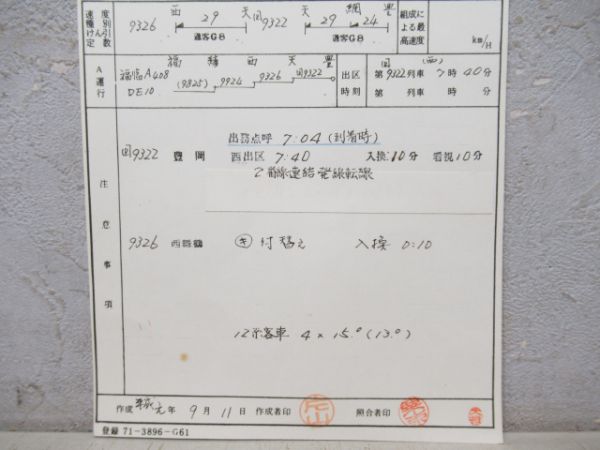 速度種別 けん引定数
9326 西 29 天 回9322 天 29 網 24 豊
遊客G8 遊客G8
組成による最高速度 km/H
A運行
福臨A408
DE10
福 篠 西 天 豊
(9825) 9924 9326 回9322
出区時刻
回 (西)
第9322列車 7時40分
第 列車 時 分
注意事項
出務点呼 7:04 (到着時)
回9322 豊岡 西出区 7:40 入換:10分 看視10分
2番線連結 発線転線
9326 西舞鶴 キ 付替え 入換 0:10
12系客車 4×15.°(13.°)
作成 平成元年 9月11日 作成者印 片山 照合者印
登録 71-3896-G61